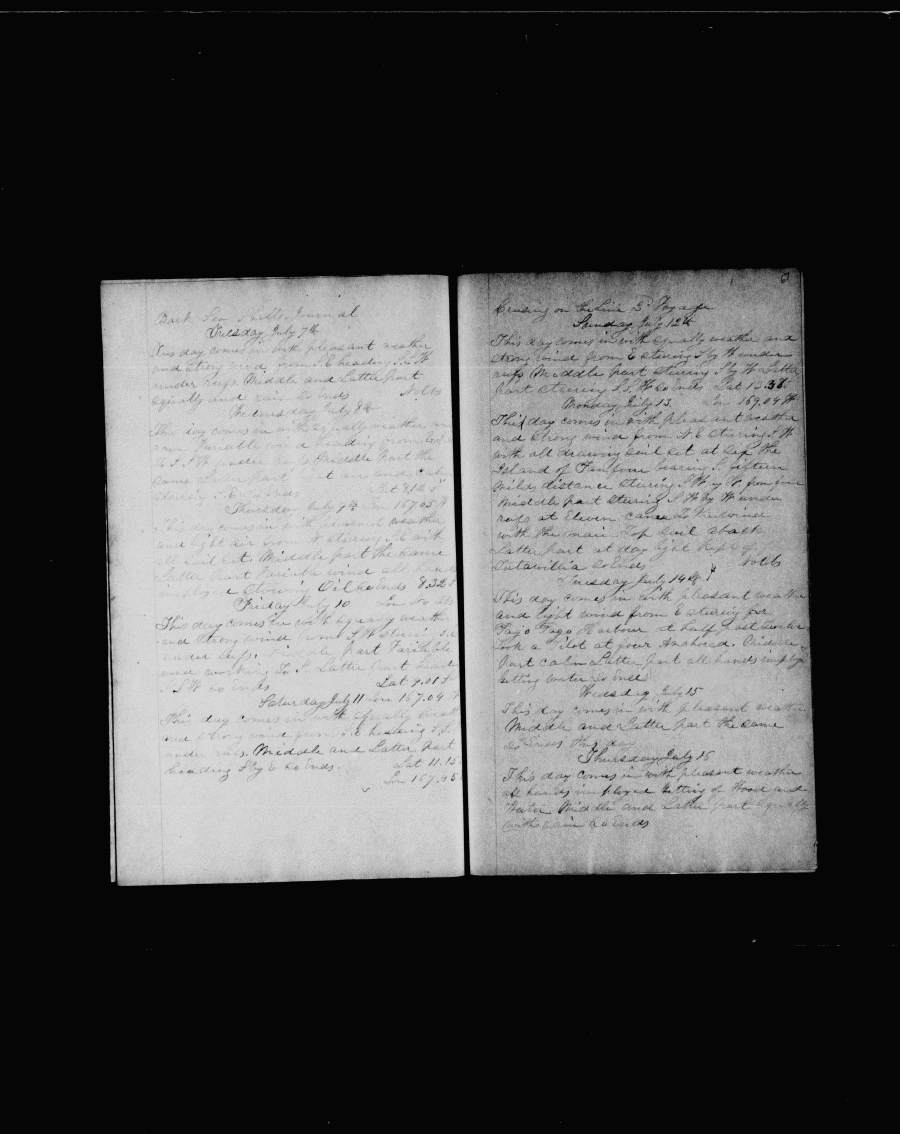 Bark Sea Journal
Tuesday July 7th
This day comes in with pleasant weather
and strong wind from S.E heading S.S.W
under reefs Middle and Latter part
squally and rain So Ends No obs
Wednesday July 8th
This day comes in with squally weather and
variable wind heading from
to S.S.W under reefs. Middle Part the
same Latter Part and calm
So Ends Lat 8.12 S
Thursday July 9th Lon 167.05 W
This day comes in with pleasant weather
and light air from N stering S.E with
all sail set. Middle part the same
Latter Part Variable wind all hands
imployed Stowing Oil So Ends 8.32 S
Friday July 10 Lon No obs
This day comes in with squally weather
and strong wind from S.W
under reefs. Middle part Varibble
and working to S. Latter Part head
S.S.W So Ends Lat 9.01 S
Saturday July 11 Lon 167.04 W
This day comes in with squally weather
and strong wind from S.E heading S.S.
under reefs. Middle and Latter Part
heading S by E So Ends. Lat 11.15
Lon 167.45
3
Cruising on the Line 3d Voyage
Sunday July 12th
This day comes in with squally weather and
strong wind from E stering S by W under
reefs Middle part stering S by W Latter
Part stering S.S.W So Ends Lat 13.38
Monday July 13 Lon 169.04 W
This day comes in with pleasant weather
and strong wind from N.E stering S.W
with all drawing sail set at the
Island of bearing S. fifteen
miles distance stering S.W by W from
Middle part stering S.W by W under
reefs at Eleven came to the wind
with the main Top sail aback
Latter part at day light kept off
So Ends No obs
Tuesday July 14th
This day comes in with pleasant weather
and light wind from E stering for
Pago Pago Harbour at half past
took a Pilot at four Anchored. Middle
Part calm Latter part all hands imployed
getting water So Ends
Wedesday July 15
This day comes in with pleasant weather
Middle and Latter part the same
So Ends this day
Thursday July 16
This day comes in with pleasant weather
all hands imployed getting of Wood and
Water Middle and Latter part squally
with rain So Ends